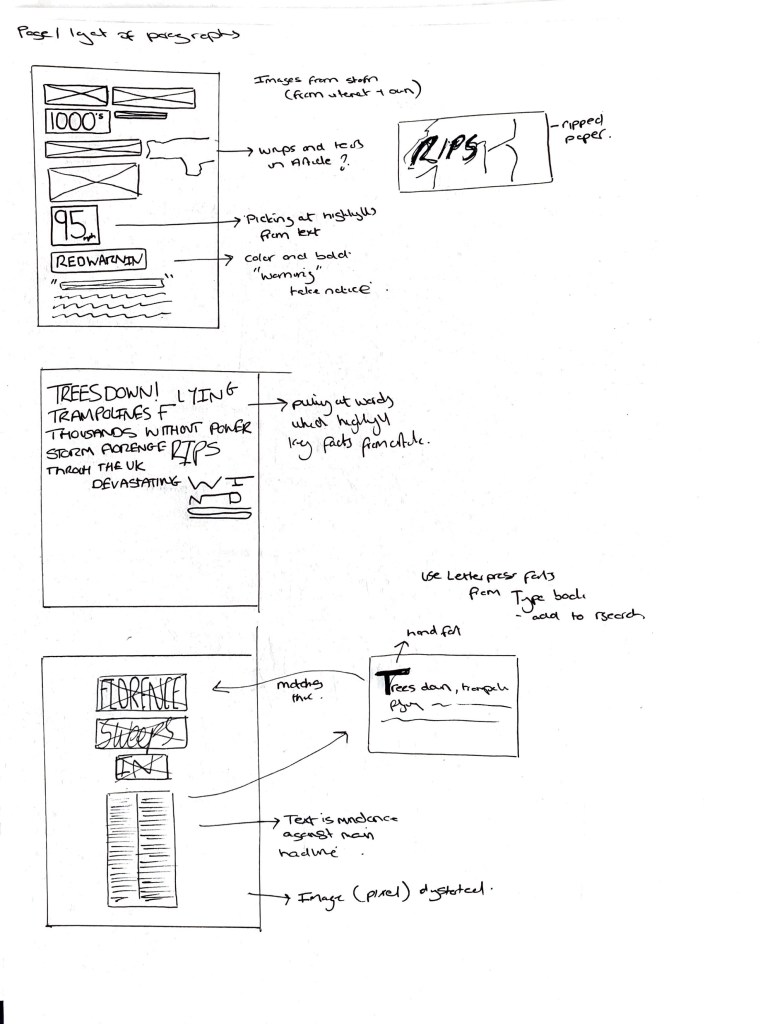 Page 1 layout of paragraphs
Images from storm
(from internet + own)
1000's
RIPS
ripped
paper.
and tears
in Article ?
95 mph
Picking out highlights
from text
RED WARNIN
color and bold.
"warning"
take notice.
TREES DOWN! LYING
TRAMPOLINES F
THOUSANDS WITHOUT POWER
STORM FLORENCE RIPS
THROUGH THE UK
DEVASTATING WI
ND
pulling out words
which highlight
key facts from article.
use Letterpress fonts
from Type book
- add to research
hand
FLORENCE
SWEEPS
IN
matches
this.
Trees down,
Text is mundane
against main
headline.
Image (pixel) dystorted.